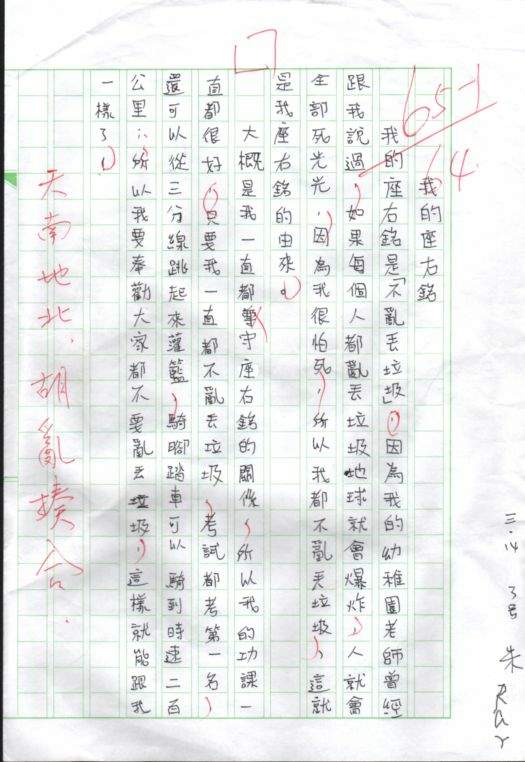 我的座右銘
我的座右銘是「不亂丟垃圾」,因為我的幼稚園老師曾經
跟我說過,如果每個人都亂丟垃圾地球就會爆炸,人就會
全部死光光,因為我很怕死,所以我都不亂丟垃圾,這就
是我座右銘的由來。
大概是我一直都篤守座右銘的關係,所以我的功課一
直都很好,只要我一直都不亂丟垃圾,考試都考第一名,
還可以從三分線跳起來灌籃,騎腳踏車可以騎到時速二百
公里,所以我要奉勸大家都不要亂丟垃圾,這樣就能跟我
一樣了!
65-1
64.
天南地北,胡亂揍合.
三.14
3号
朱